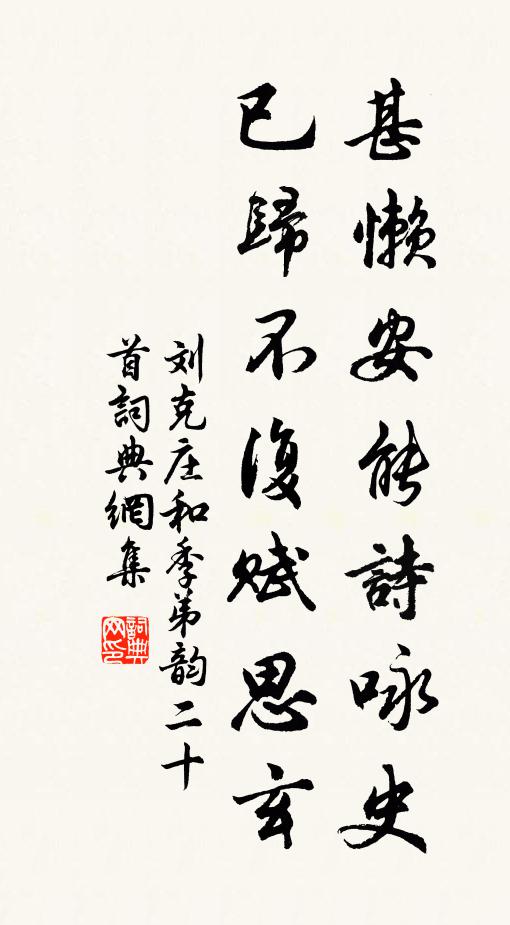 甚懒安能詩咏史
已歸不復赋思玄
刘克庄和季弟韵二十
首詞典網集
詞典网印